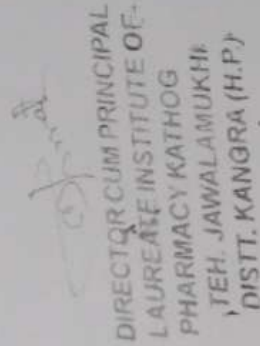 DIRECTOR CUM PRINCIPAL
LAUREATE INSTITUTE OF
PHARMACY KATHOG
TEH. JAWALAMUKHI
DISTT. KANGRA (H.P.)